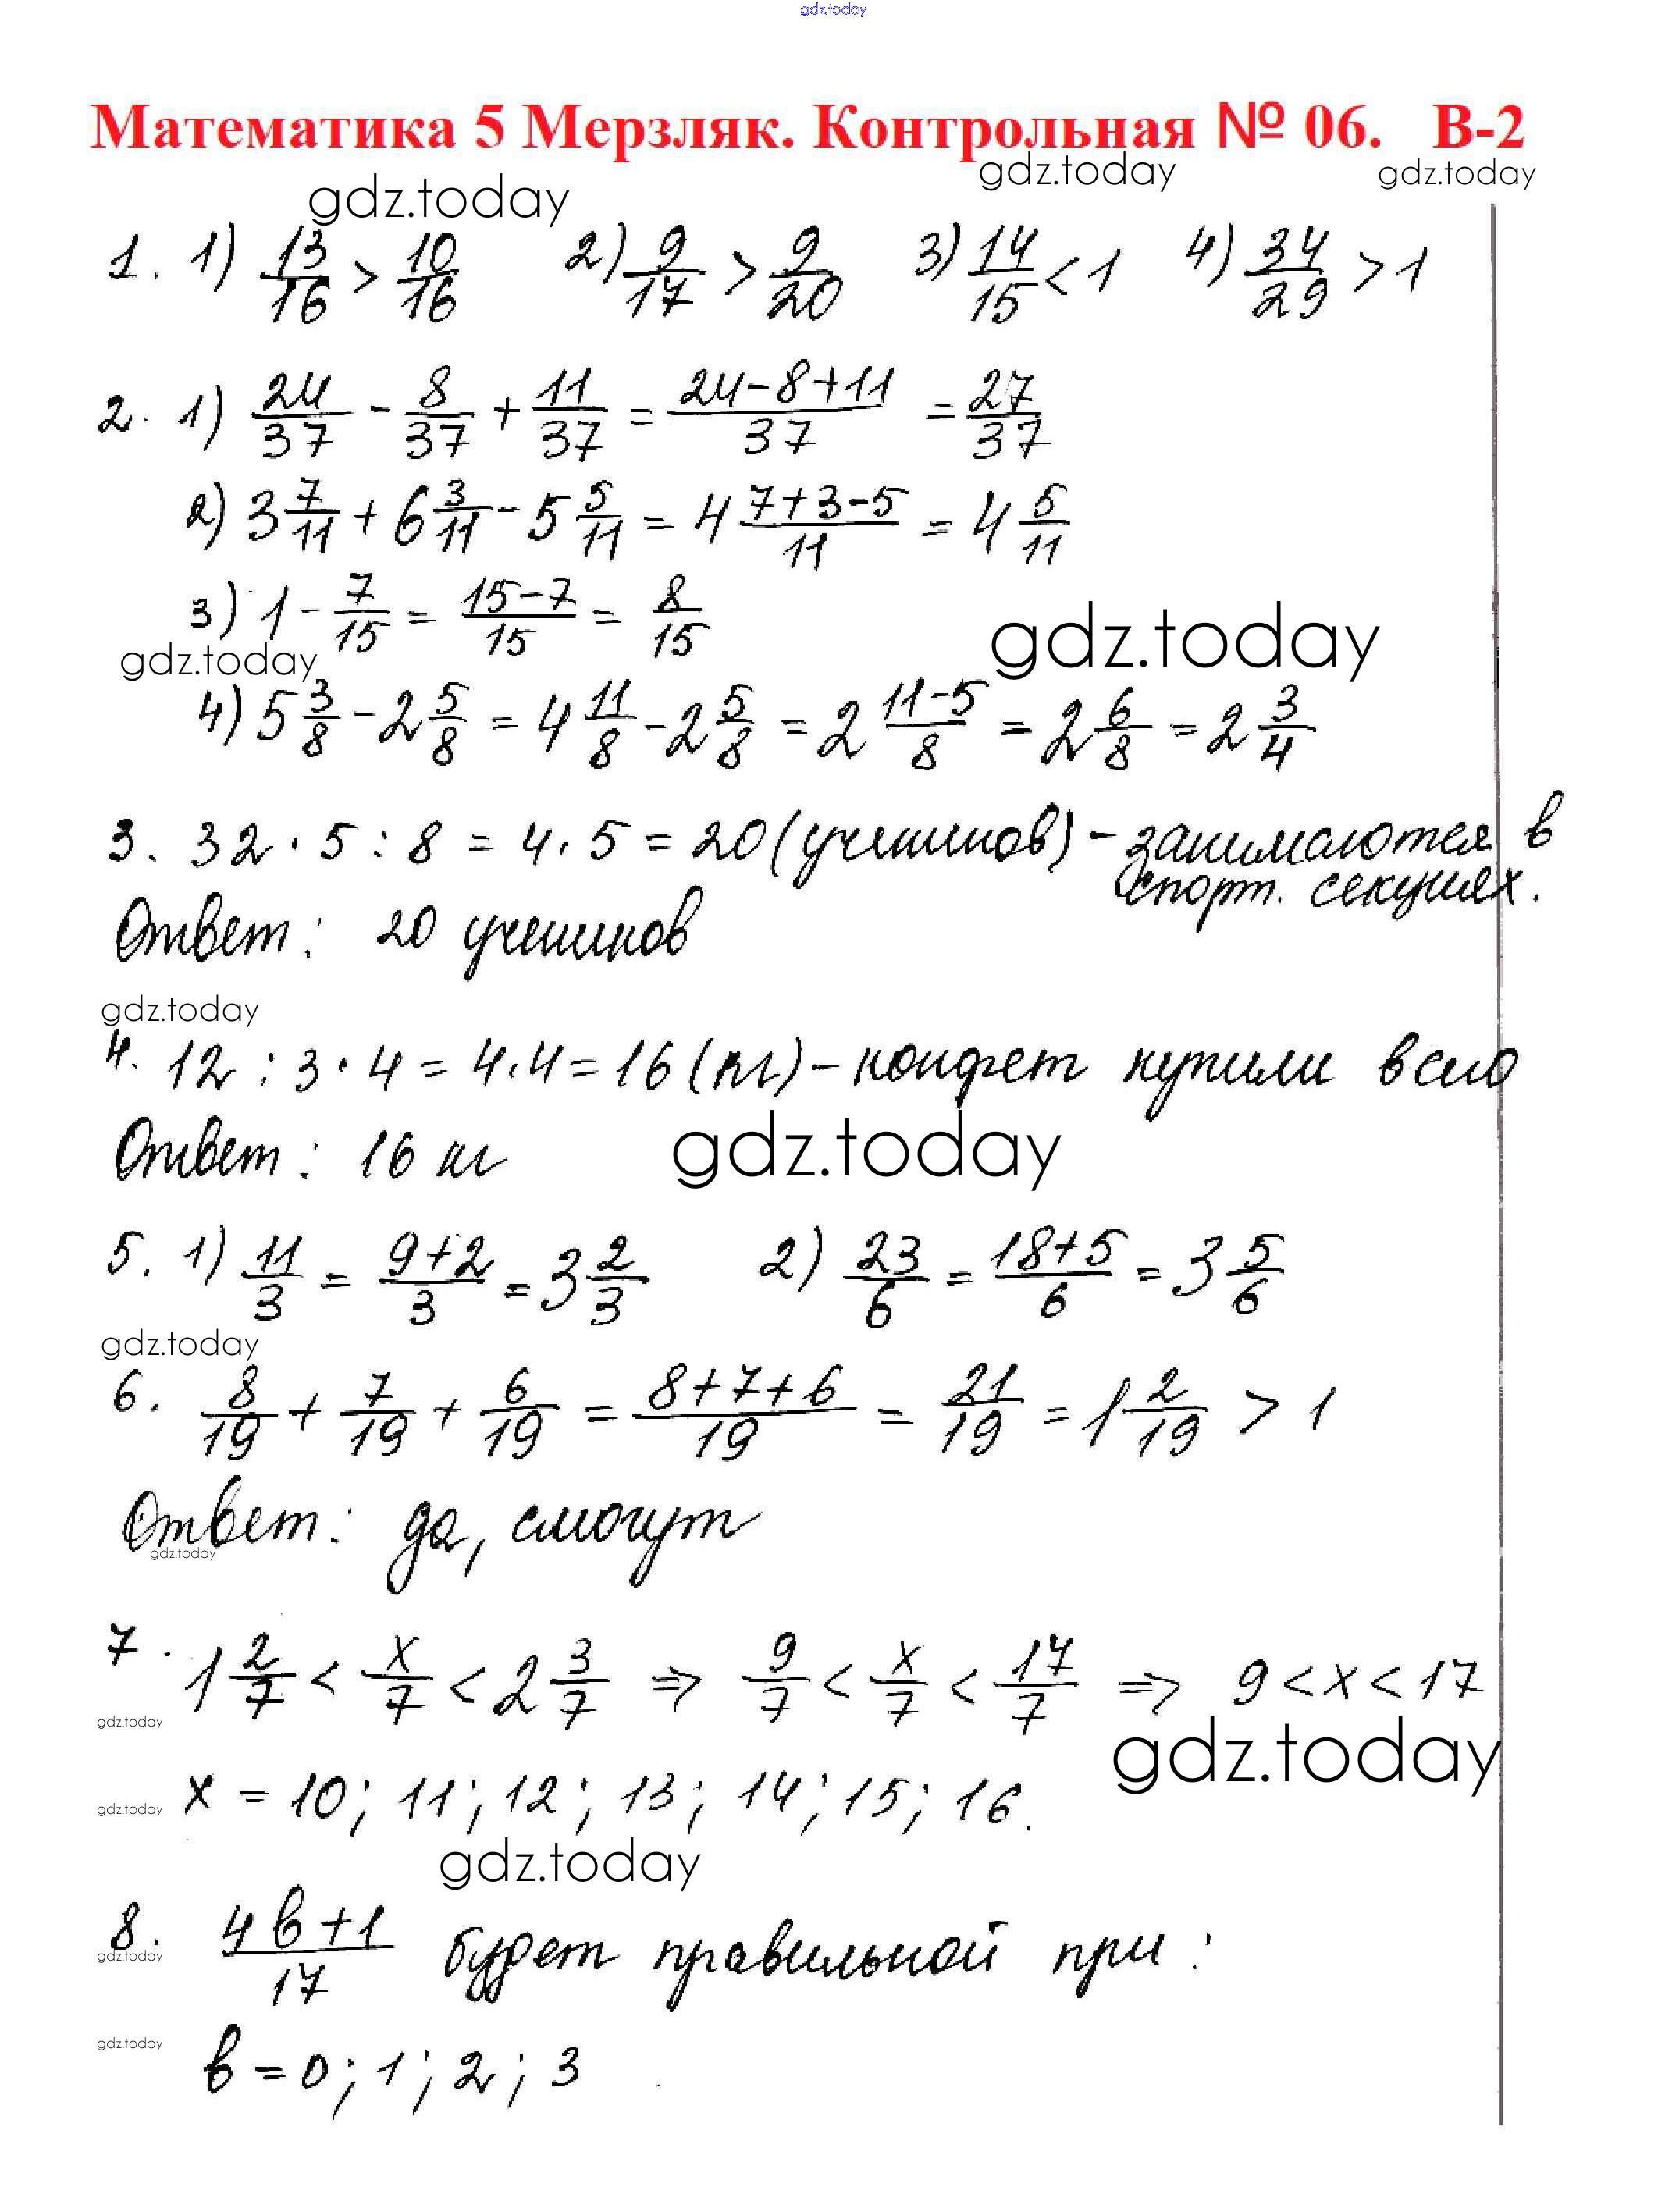 gdz.today
Математика 5 Мерзляк. Контрольная № 06. В-2
gdz.today gdz.today gdz.today
1. 1) 13/16 > 10/16 2) 9/17 > 9/20 3) 14/15 < 1 4) 34/29 > 1
2. 1) 24/37 - 8/37 + 11/37 = (24-8+11)/37 = 27/37
2) 3 7/11 + 6 3/11 - 5 5/11 = 4 (7+3-5)/11 = 4 5/11
3) 1 - 7/15 = (15-7)/15 = 8/15
gdz.today gdz.today
4) 5 3/8 - 2 5/8 = 4 11/8 - 2 5/8 = 2 (11-5)/8 = 2 6/8 = 2 3/4
3. 32 · 5 : 8 = 4 · 5 = 20 (учеников) - занимаются в
спорт. секциях.
Ответ: 20 учеников
gdz.today
4. 12 : 3 · 4 = 4 · 4 = 16 (кг) - конфет купили всего
Ответ: 16 кг
gdz.today
5. 1) 11/3 = (9+2)/3 = 3 2/3 2) 23/6 = (18+5)/6 = 3 5/6
gdz.today
6. 8/19 + 7/19 + 6/19 = (8+7+6)/19 = 21/19 = 1 2/19 > 1
Ответ: да, смогут
gdz.today
7. 1 2/7 < x/7 < 2 3/7 => 9/7 < x/7 < 17/7 => 9 < x < 17
gdz.today gdz.today
x = 10; 11; 12; 13; 14; 15; 16.
gdz.today
gdz.today
8. (4в+1)/17 будет правильной при:
gdz.today
gdz.today
в = 0; 1; 2; 3